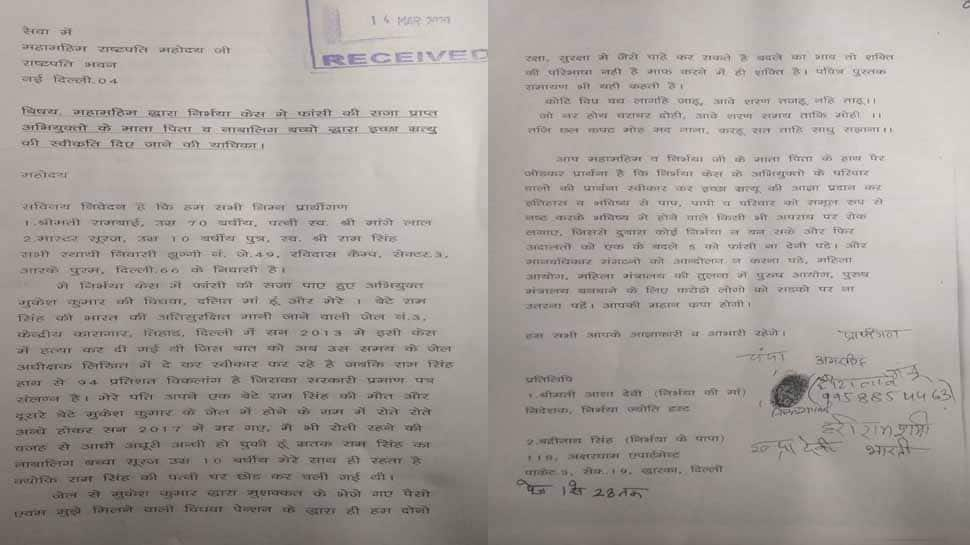 14 MAR 2020
RECEIVED
सेवा में
महामहिम राष्टपति महोदय जी
राष्टपति भवन
नई दिल्ली.04
विषय. महामहिम द्वारा निर्भया केस मे फांसी की सजा प्राप्त
अभियुक्तो के माता पिता व नाबालिग बच्चो द्वारा इच्छा म्रत्यु
की स्वीकृति दिए जाने की याचिका।
महोदय
सविनय निवेदन है कि हम सभी निम्न प्रार्थीगण
1.श्रीमती रामबाई, उम्र 70 वर्षीय, पत्नी स्व. श्री मांगे लाल
2.मास्टर सूरज, उम्र 10 वर्षीय पुत्र, स्व. श्री राम सिंह
सभी स्थायी निवासी झुग्गी नं. जे.49, रविदास कैम्प, सेक्टर.3,
आरके पुरम, दिल्ली.66 के निवासी है।
मै निर्भया केस में फांसी की सजा पाए हुए अभियुक्त
मुकेश कुमार की विधवा, दलित मां हूं और मेरे । बेटे राम
सिंह की भारत की अतिसुरक्षित मानी जाने वाली जेल नं.3,
केन्द्रीय कारागार, तिहाड, दिल्ली में सन 2013 मे इसी केस
में हत्या कर दी गई थी जिस बात को अब उस समय के जेल
अधीक्षक लिखित में दे कर स्वीकार कर रहे है जबकि राम सिंह
हाथ से 94 प्रतिशत विकलांग है जिसका सरकारी प्रमाण पत्र
संलग्न है। मेरे पति अपने एक बेटे राम सिंह की मौत और
दूसरे बेटे मुकेश कुमार के जेल में होने के गम में रोते रोते
अन्धे होकर सन 2017 में मर गए, मैं भी रोती रहने की
वजह से आधी अधूरी अन्धी हो चुकी हूं म्रतक राम सिंह का
नाबालिग बच्चा सूरज उम्र 10 वर्षीय मेरे साथ ही रहता है
क्योकि राम सिंह की पत्नी घर छोड कर चली गई थी।
जेल से मुकेश कुमार द्वारा मुशक्कत के भेजे गए पैसो
एवम मुझे मिलने वाली विधवा पेन्शन के द्वारा ही हम दोनो
रक्षा, सुरक्षा मे जैसे चाहे कर सकते है बदले का भाव तो शक्ति
की परिभाषा नही है माफ करने में ही शक्ति है। पवित्र पुस्तक
रामायण भी यही कहती है।
कोटि विप्र वध लागहि जाहू, आवे शरण तजहू नहि ताहू।।
जो नर होय चराचर द्रोही, आवे शरण समय ताकि मोही ।।
तजि छल कपट मोह मद नाना, करहू सत ताहि साधु समाना।।
आप महामहिम व निर्भया जी के माता पिता के हाथ पैर
जोडकर प्रार्थना है कि निर्भया केस के अभियुक्तो के परिवार
वालो की प्रार्थना स्वीकार कर इच्छा म्रत्यू की आज्ञा प्रदान कर
इतिहास व भविष्य से पाप, पापी व परिवार को समूल रूप से
नष्ट करके भविष्य मे होने वाले किसी भी अपराध पर रोक
लगाए, जिससे दुबारा कोई निर्भया न बन सके और फिर
अदालतो को एक के बदले 5 को फांसी ना देनी पडे। और
मानवधिकार संगटनो को आन्दोलन न करना पडे, महिला
आयोग, महिला मंत्रालय की तुलना में पुरूष आयोग, पुरूष
मंत्रालय बनवाने के लिए करोडो लोगो को सडको पर ना
उतरना पडें। आपकी महान क्रपा होगी।
हम सभी आपके आज्ञाकारी व आभारी रहेगे।
प्रार्थीगण
चंपा
प्रतिलिपि
1.श्रीमती आशा देवी (निर्भया की मां)
निदेशक, निर्भया ज्योति ट्रस्ट
9958855463
2.बद्रीनाथ सिंह (निर्भया के पापा)
118, अक्षरधाम एपार्टमेन्ट
पाकेट.3, सेक.19, द्वारका, दिल्ली
हरी राम शर्मा
भारती
पेज 1 से 28 तक